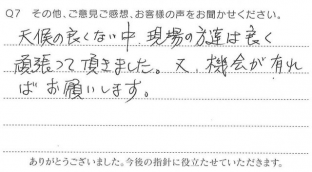 Q7 その他、ご意見ご感想、お客様の声をお聞かせください。
天候の良くない中 現場の方達は良く
頑張って頂きました。又、機会が有れ
ばお願いします。
ありがとうございました。今後の指針に役立たせていただきます。